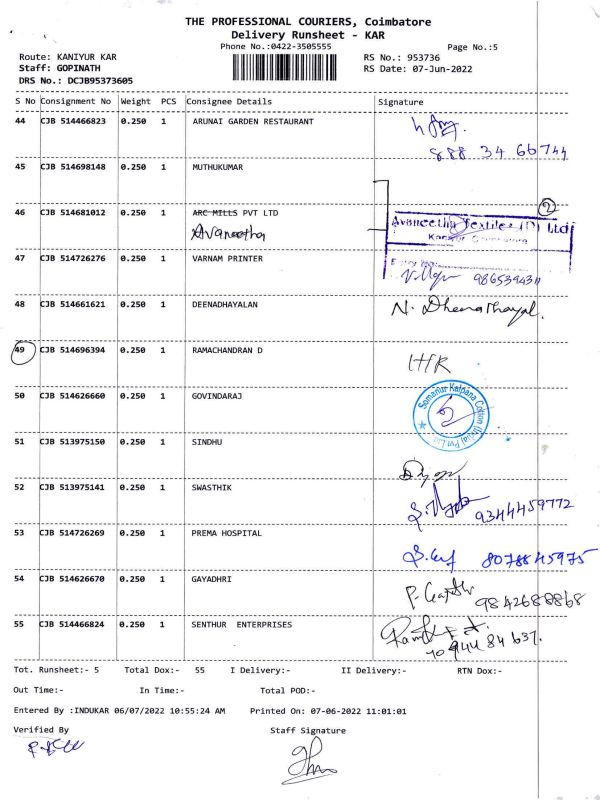 THE PROFESSIONAL COURIERS, Coimbatore
Delivery Runsheet - KAR
Phone No.:0422-3505555
Page No.:5
Route: KANIYUR KAR
RS No.: 953736
Staff: GOPINATH
RS Date: 07-Jun-2022
DRS No.: DCJB95373605
S No Consignment No Weight PCS Consignee Details Signature
44 CJB 514466823 0.250 1 ARUNAI GARDEN RESTAURANT
888 34 66744
45 CJB 514698148 0.250 1 MUTHUKUMAR
2
46 CJB 514681012 0.250 1 ARC MILLS PVT LTD
Avaneetha
Avaneetha Textiles (P) Ltd
47 CJB 514726276 0.250 1 VARNAM PRINTER
9865394311
48 CJB 514661621 0.250 1 DEENADHAYALAN
N. Dheenathayal.
49 CJB 514696394 0.250 1 RAMACHANDRAN D
50 CJB 514626660 0.250 1 GOVINDARAJ
Somanur Kalpana Cotton (India) Pvt Ltd
51 CJB 513975150 0.250 1 SINDHU
52 CJB 513975141 0.250 1 SWASTHIK
9344459772
53 CJB 514726269 0.250 1 PREMA HOSPITAL
8078845975
54 CJB 514626670 0.250 1 GAYADHRI
9842688868
55 CJB 514466824 0.250 1 SENTHUR ENTERPRISES
Tot. Runsheet:- 5 Total Dox:- 55 I Delivery:- II Delivery:- RTN Dox:-
Out Time:- In Time:- Total POD:-
Entered By :INDUKAR 06/07/2022 10:55:24 AM Printed On: 07-06-2022 11:01:01
Verified By Staff Signature